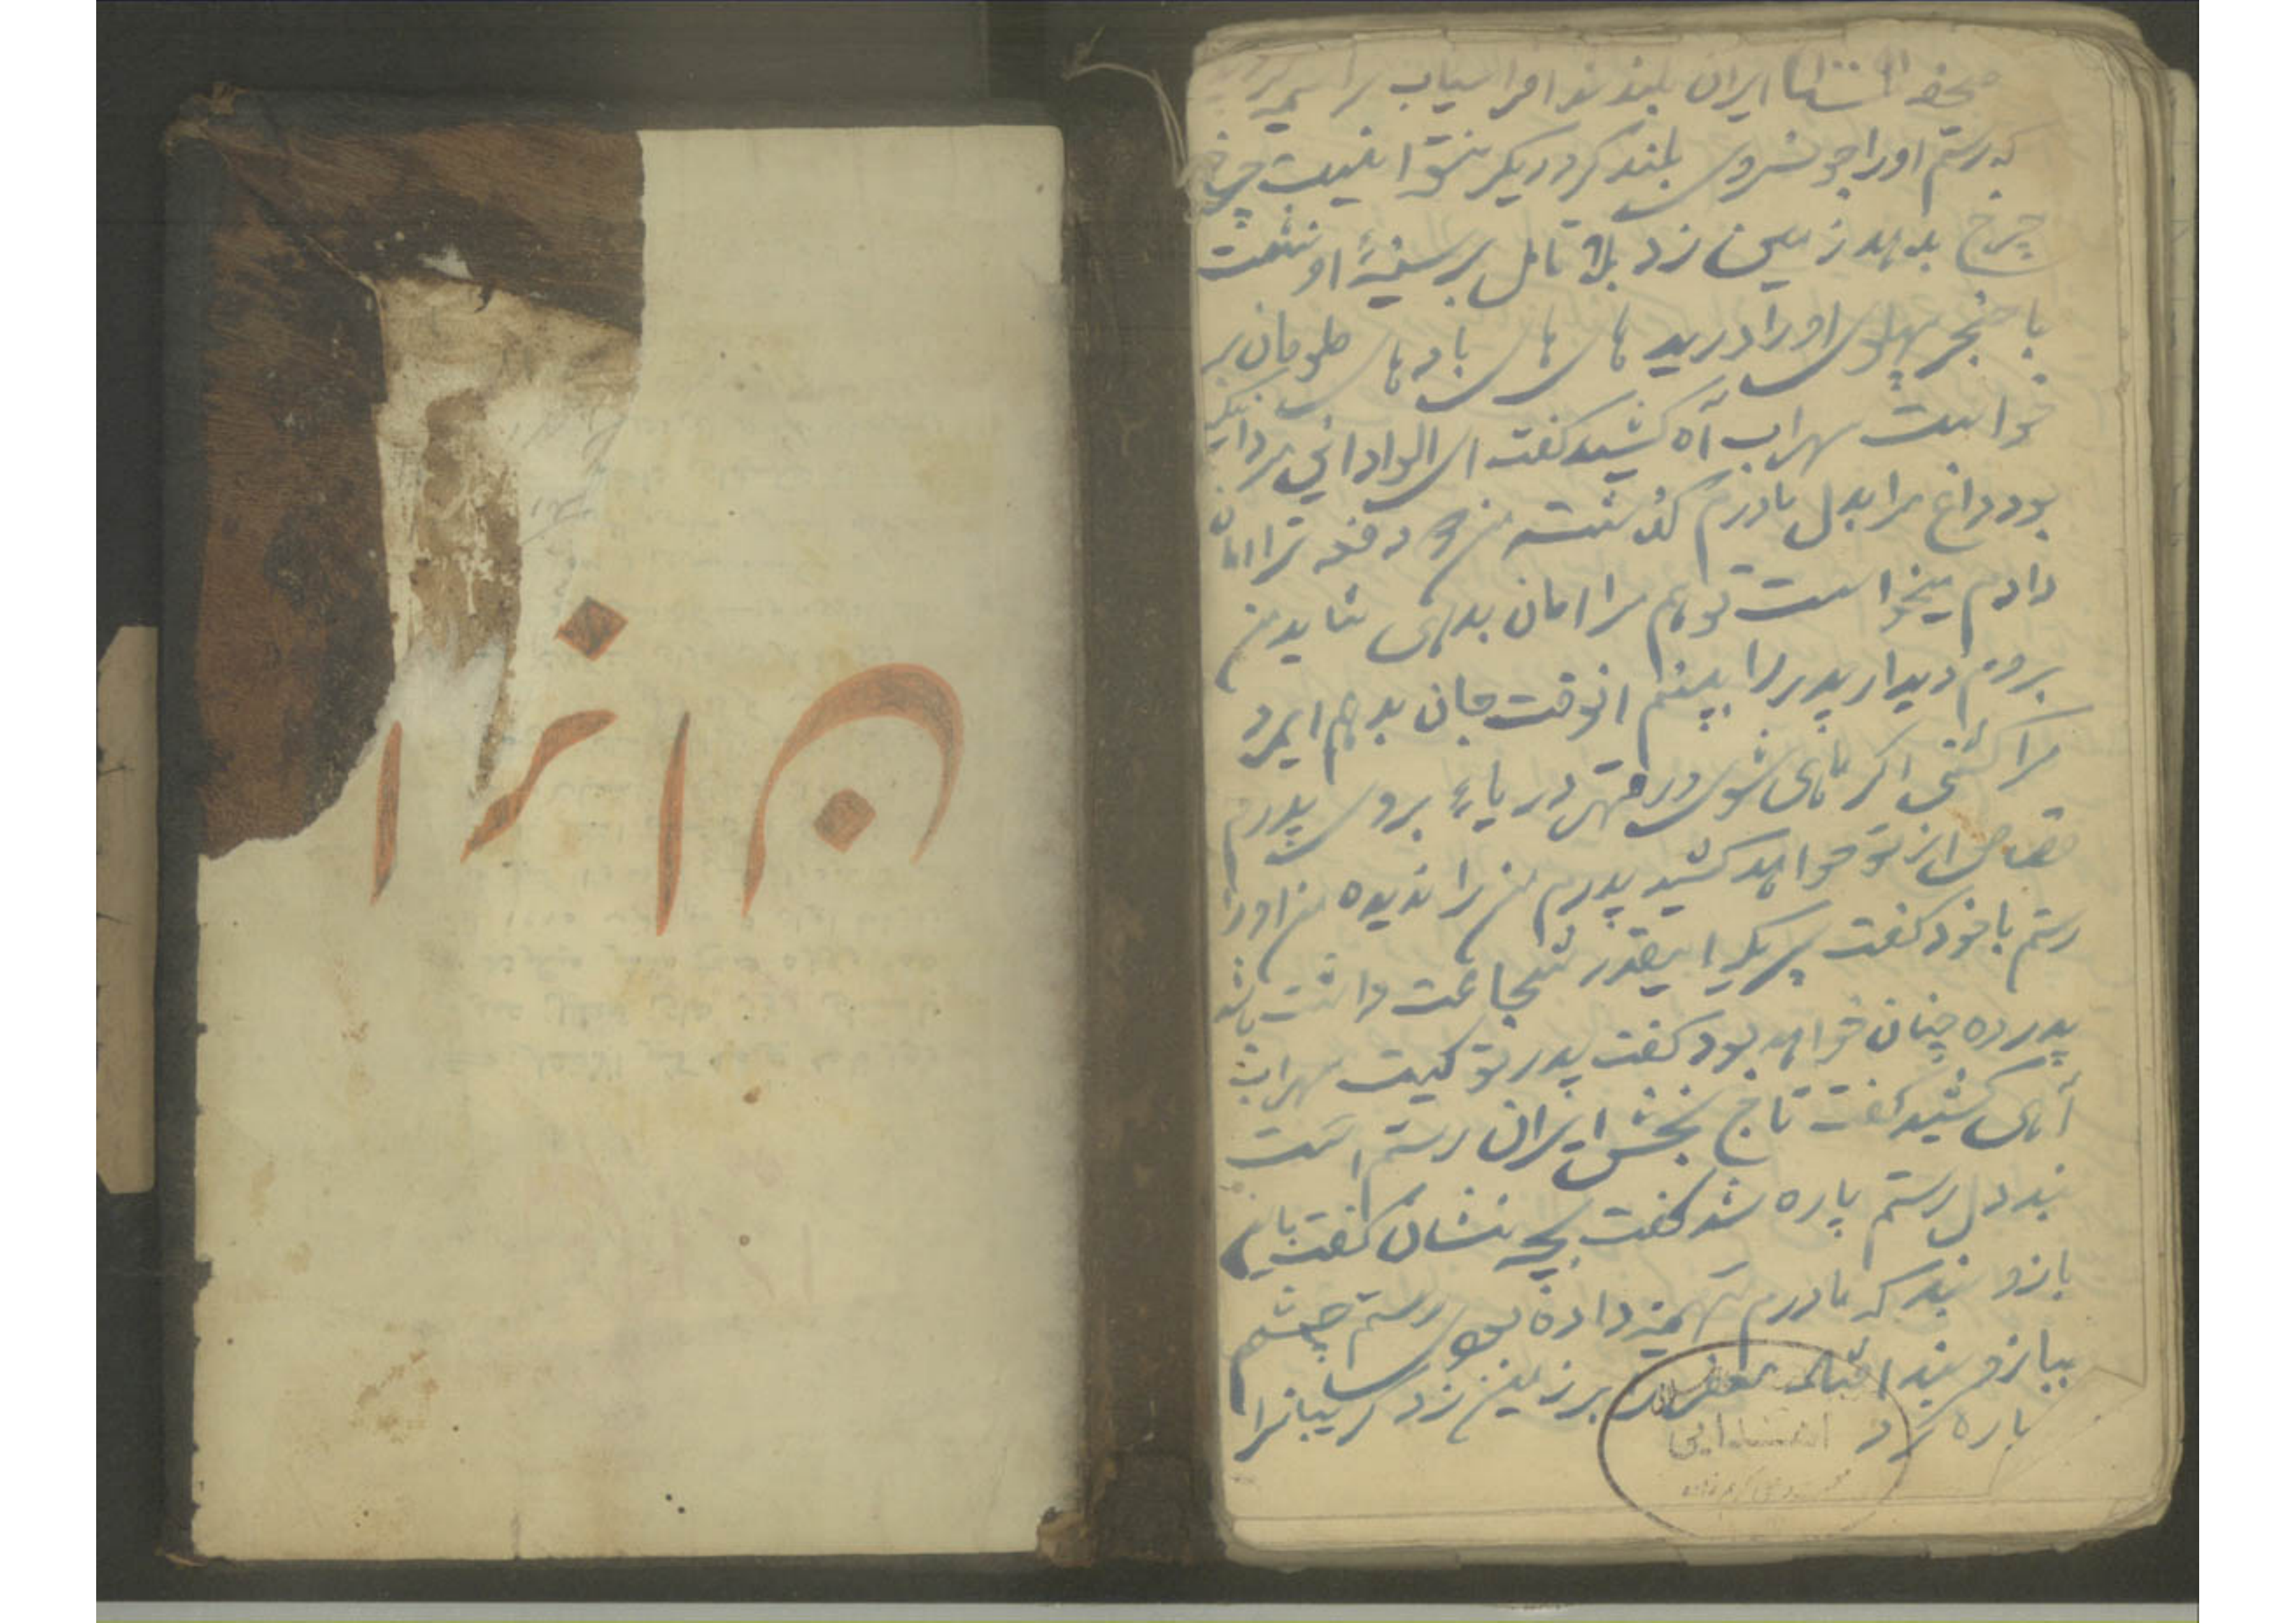 ایران بلند شد افراسیاب را
که رستم اورا چو بلند کرد دیگر نتوانیست چرخ
چرخ بدهد زمین زد بلا تامل بر سینهٔ او نشست
با خنجر پهلوی اورا درید های های باد های طوفان بر
خواست سهراب آه کشید گفت ای
بود داغ مرا بدل مادرم گذشته من دفعه ترا امان
دادم میخواست تو هم مرا امان بدهی شاید من
بروم دیدار پدر را ببینم انوقت جان بدهم ایمرد
مرا کشتی اگر ماهی شوی در قهر دریا بروی پدرم
قصاص از تو خواهد کشید پدرم من را ندیده من اورا
رستم با خود گفت اینقدر شجاعت داشت باشد
پدرده چنان خواهد بود گفت پدر تو کیست سهراب
آهی کشید گفت تاج بخش ایران رستم است
بند دل رستم پاره شد گفت بچه نشان گفت باین
بازو بند که مادرم تهمینه داده بود رستم چشم
ببازو بند بر زمین زد گریبانرا
پاره کرد
ن ا ز ا